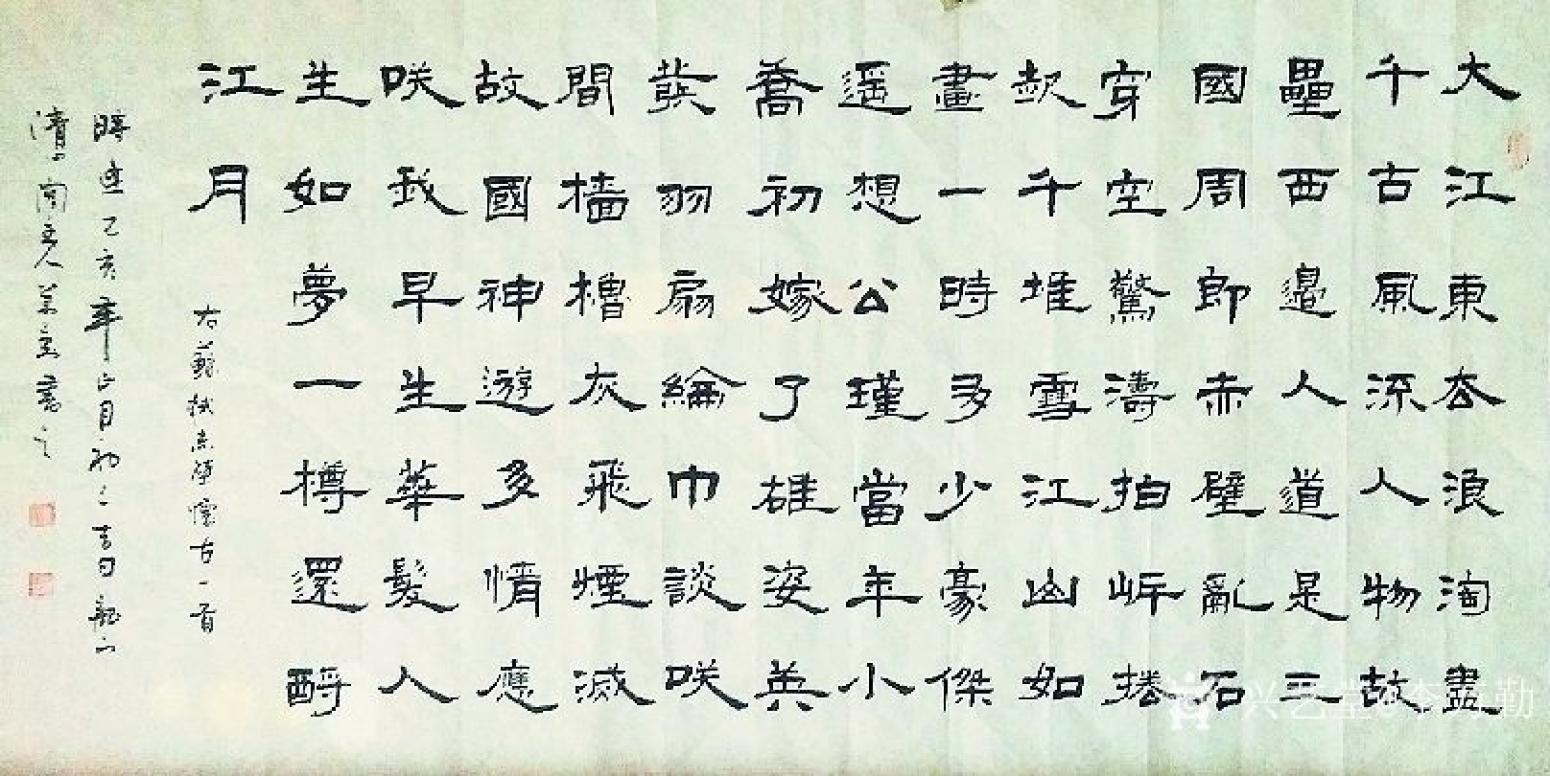 大江東去浪淘盡
千古風流人物故
壘西邊人道是三
國周郎赤壁亂石
穿空驚濤拍岸捲
起千堆雪江山如
畫一時多少豪傑
遥想公瑾當年小
喬初嫁了雄姿英
發羽扇綸巾談咲
間檣櫓灰飛煙滅
故國神遊多情應
咲我早生華髮人
生如夢一樽還酹
江月
右蘇軾赤壁懷古一首
時逢己亥年正月初二吉日
書之
兴艺堂